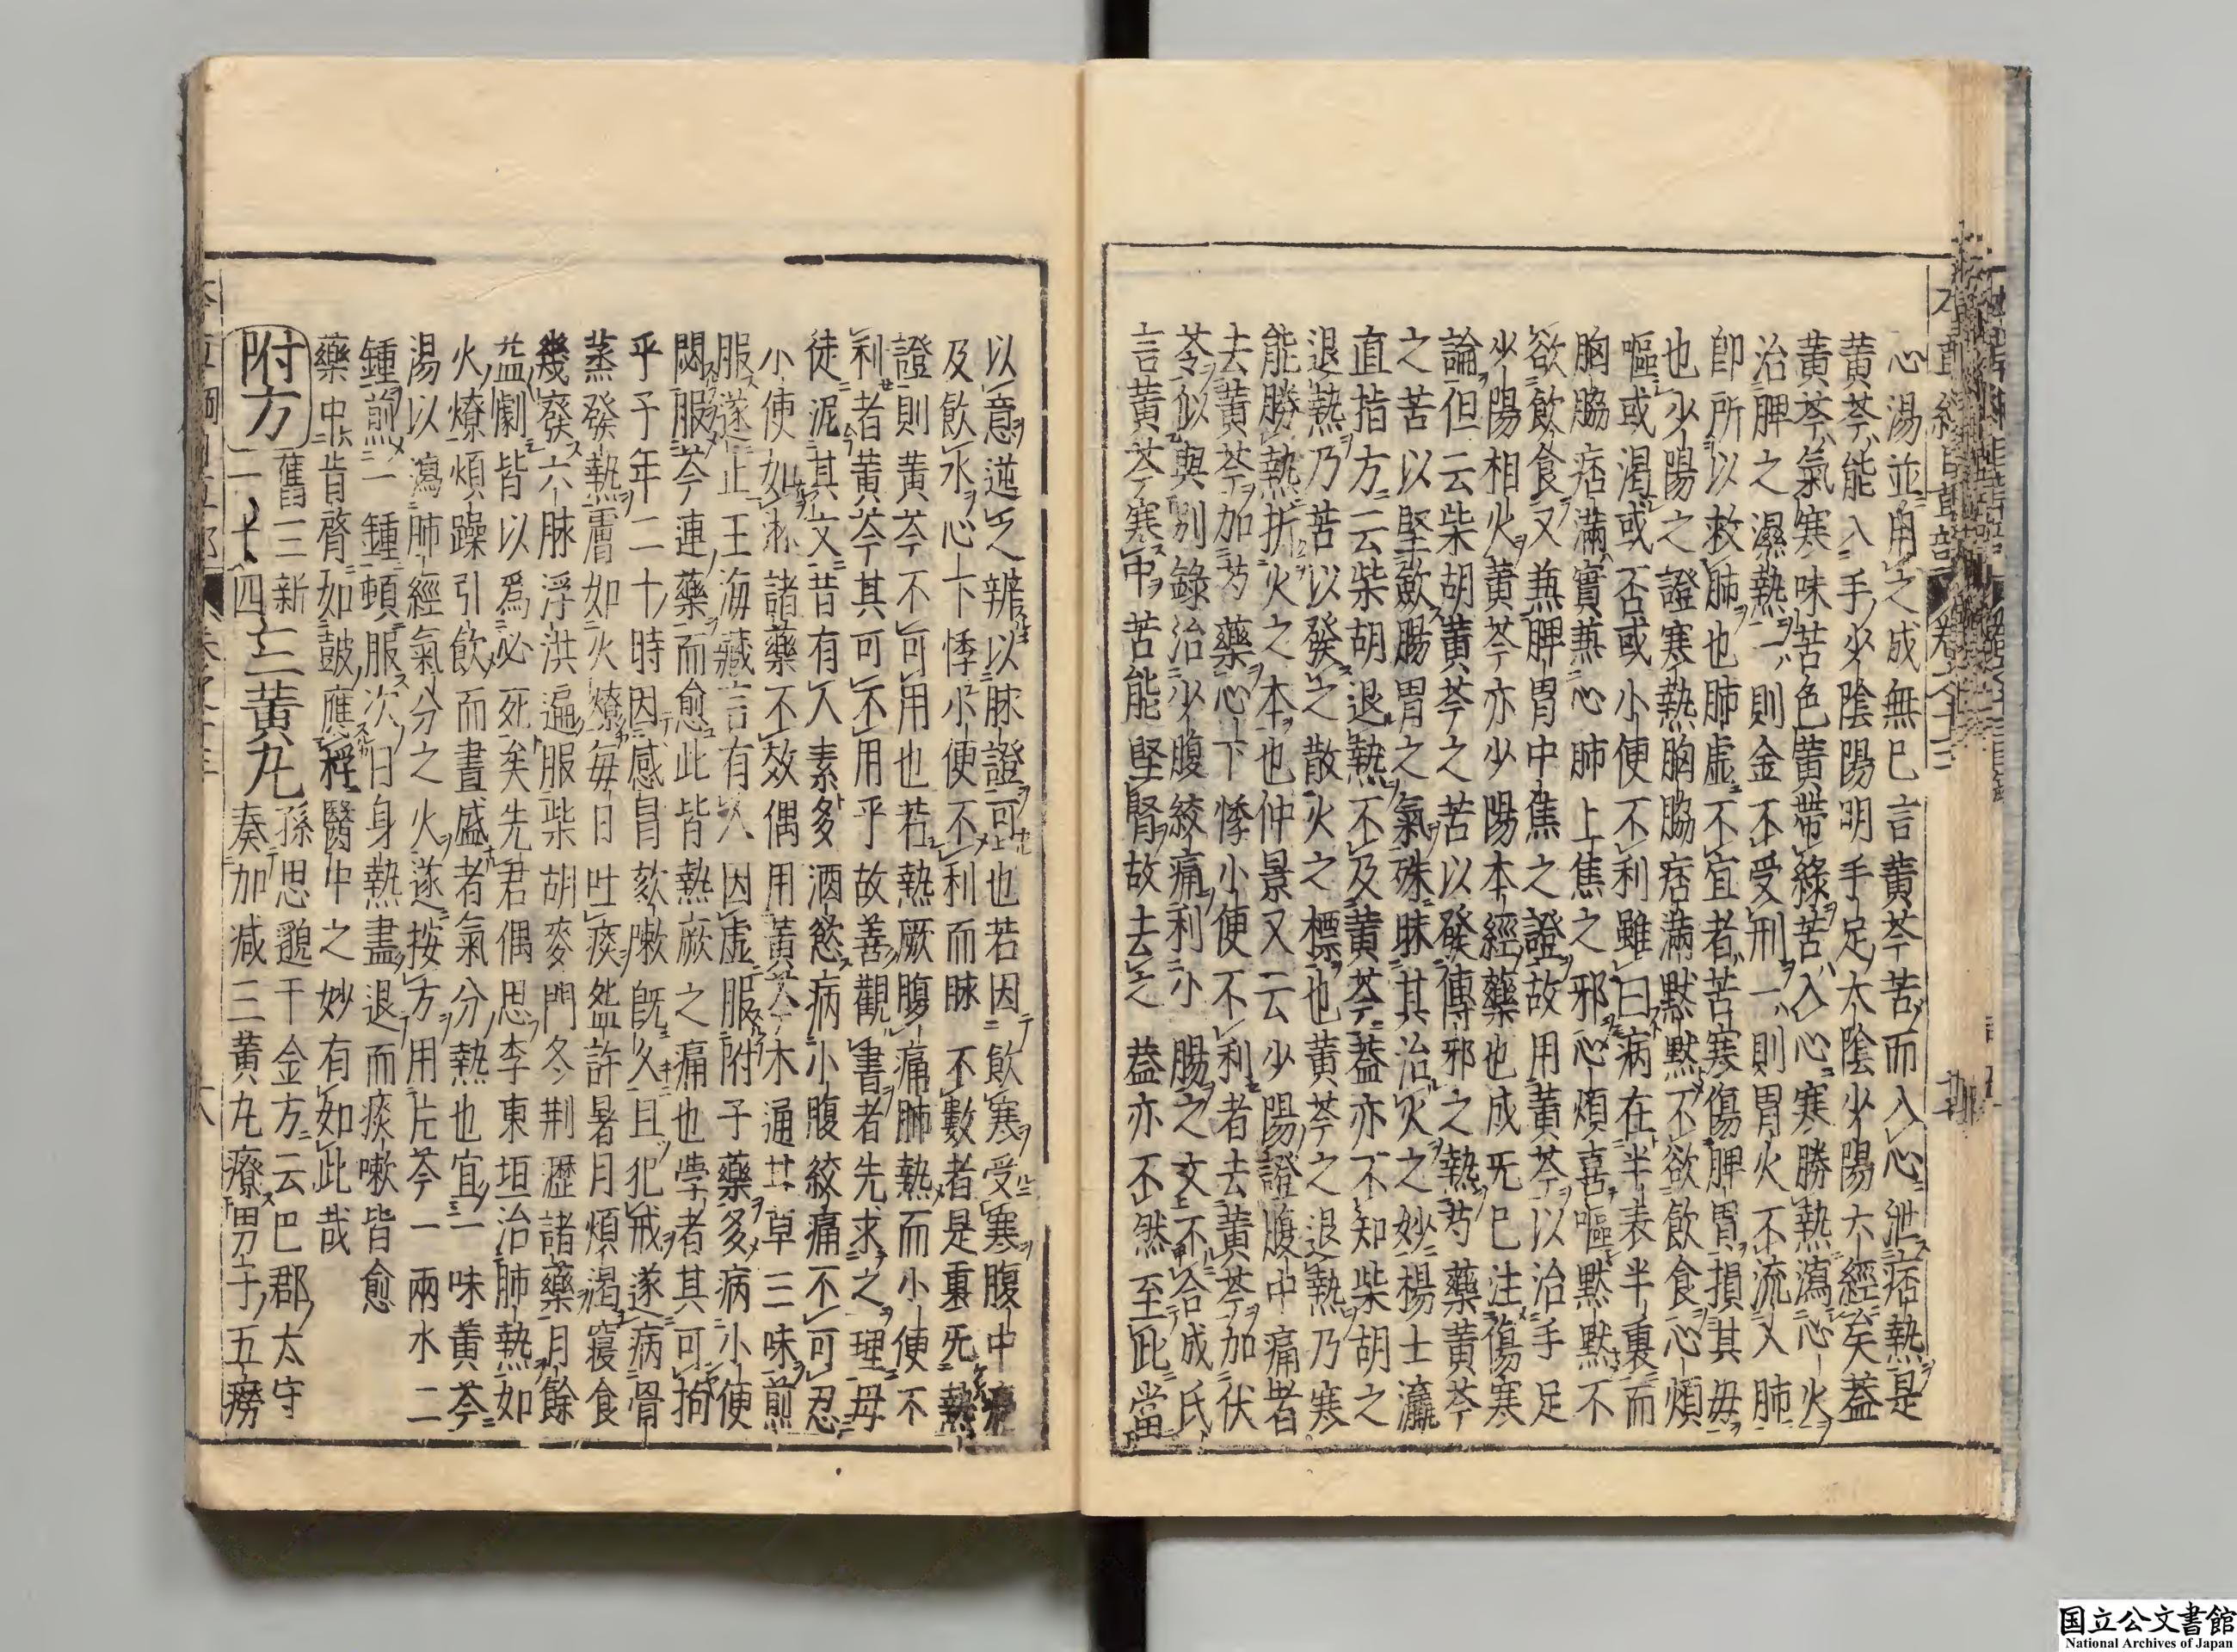 心湯並用之成無已言黃芩苦而入心泄痞熱是
黃芩能入手少陰陽明手足太陰少陽六經矣葢
黃芩氣寒味苦色黃帶綠苦入心寒勝熱瀉心火
治脾之濕熱一則金不受刑一則胃火不流入肺
卽所以救肺也肺虛不宜者苦寒傷脾胃損其毋
也少陽之證寒熱胸脇痞滿默默不欲飮食心煩
嘔或渴或否或小便不利雖曰病在半表半裏而
胸脇痞滿實兼心肺上焦之邪心煩喜嘔默默不
欲飮食又兼脾胃中焦之證故用黃芩以治手足
少陽相火黃芩亦少陽本經藥也成旡巳注傷寒
論但云柴胡黃芩之苦以發傳邪之熱芍藥黃芩
之苦以堅歛腸胃之氣殊昧其治火之妙楊士瀛
直指方云柴胡退熱不及黃芩葢亦不知柴胡之
退熱乃苦以發之散火之標也黃芩之退熱乃寒
能勝熱折火之本也仲景又云少陽證腹中痛者
去黃芩加芍藥心下悸小便不利者去黃芩加伏
苓似與別錄治少腹絞痛利小腸之文不合成氏
言黃芩寒中苦能堅腎故去之葢亦不然至此當
以意逆之辨以脉證可也若因飮寒受寒腹中痛
及飮水心下悸小便不利而脉不數者是裏旡熱
證則黃芩不可用也若熱厥腹痛肺熱而小便不
利者黃芩其可不用乎故善觀書者先求之理毋
徒泥其文昔有人素多酒慾病小腹絞痛不可忍
小便如淋諸藥不效偶用黃芩木通甘草三味煎
服遂止王海藏言有人因虛服附子藥多病小便
閟服芩連藥而愈此皆熱厥之痛也學者其可拘
乎予年二十時因感冒欬嗽旣久且犯戒遂病骨
蒸發熱膚如火燎每日吐痰盌許暑月煩渴寢食
幾廢六脉浮洪遍服柴胡麥門冬荆瀝諸藥月餘
益劇皆以爲必死矣先君偶思李東垣治肺熱如
火燎煩躁引飮而晝盛者氣分熱也宜一味黃芩
湯以瀉肺經氣分之火遂按方用片芩一兩水二
鍾煎一鍾頓服次日身熱盡退而痰嗽皆愈
藥中肯䯒如鼓應桴醫中之妙有如此哉
附方
舊三新
二十四
三黃丸
孫思邈千金方云巴郡太守
奏加減三黃丸療男子五癆
国立公文書館
National Archives of Japan